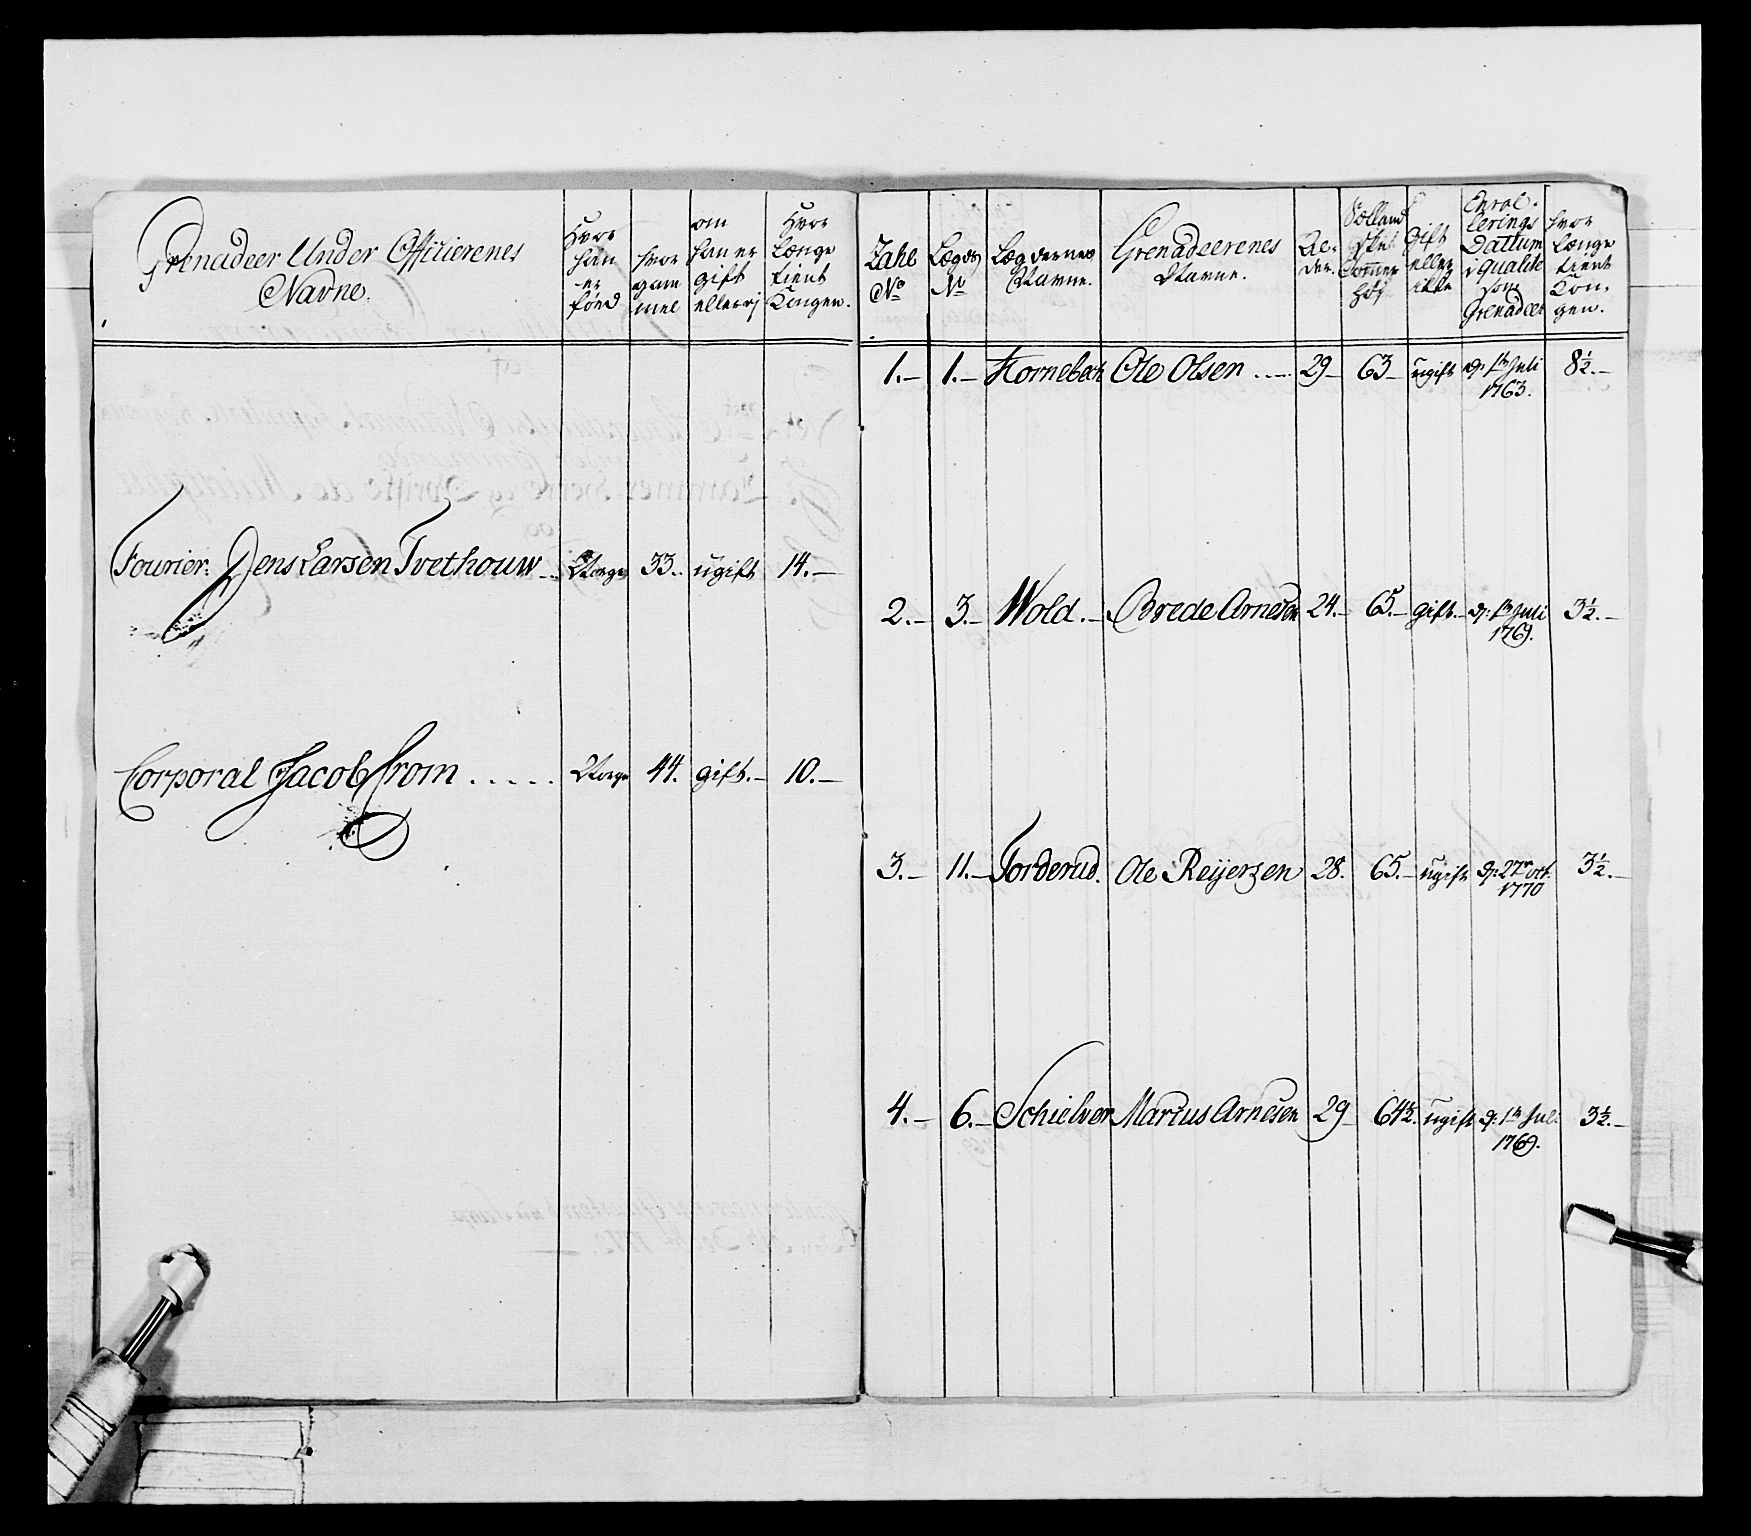 Grenadeer Under Officierenes
Navne.
Hvor
han
er
föed
hvor
gam
mel
om
han er
gift
eller ej
Hvor
Længe
tient
Kongen.
Fourier: Jens Larsen Tvethouw .. Norge 33.. ugift 14.-
Corporal Jacob From ..... Norge 44. gift.- 10.-
Zahl
No
Lægds
No
Lægdernes
Navne.
Grenadeerenes
Navne.
Al-
der.
Holland
ske
Tommer
høj
Gift
eller
ikke
Enrol-
lerings
Dattum
i qualite
som
Grenadeer
hvor
længe
tient
Kon-
gen.
1.- 1.- Hornebech Ole Olsen ..... 29- 63- ugift d: 1te Juli
1763. 8½.-
2.- 3.- Wold.- Brede Arnesen 24.- 65.- gift.- d: 1te Juli
1769. 3½.-
3.- 11.- Torderud. Ole Reijersen 28. 65.- ugift d: 27de oct.
1770 3½.-
4.- 6.- Schielver Marcus Arnesen 29- 64½. ugift d: 1te Jul:
1769. 3½.-